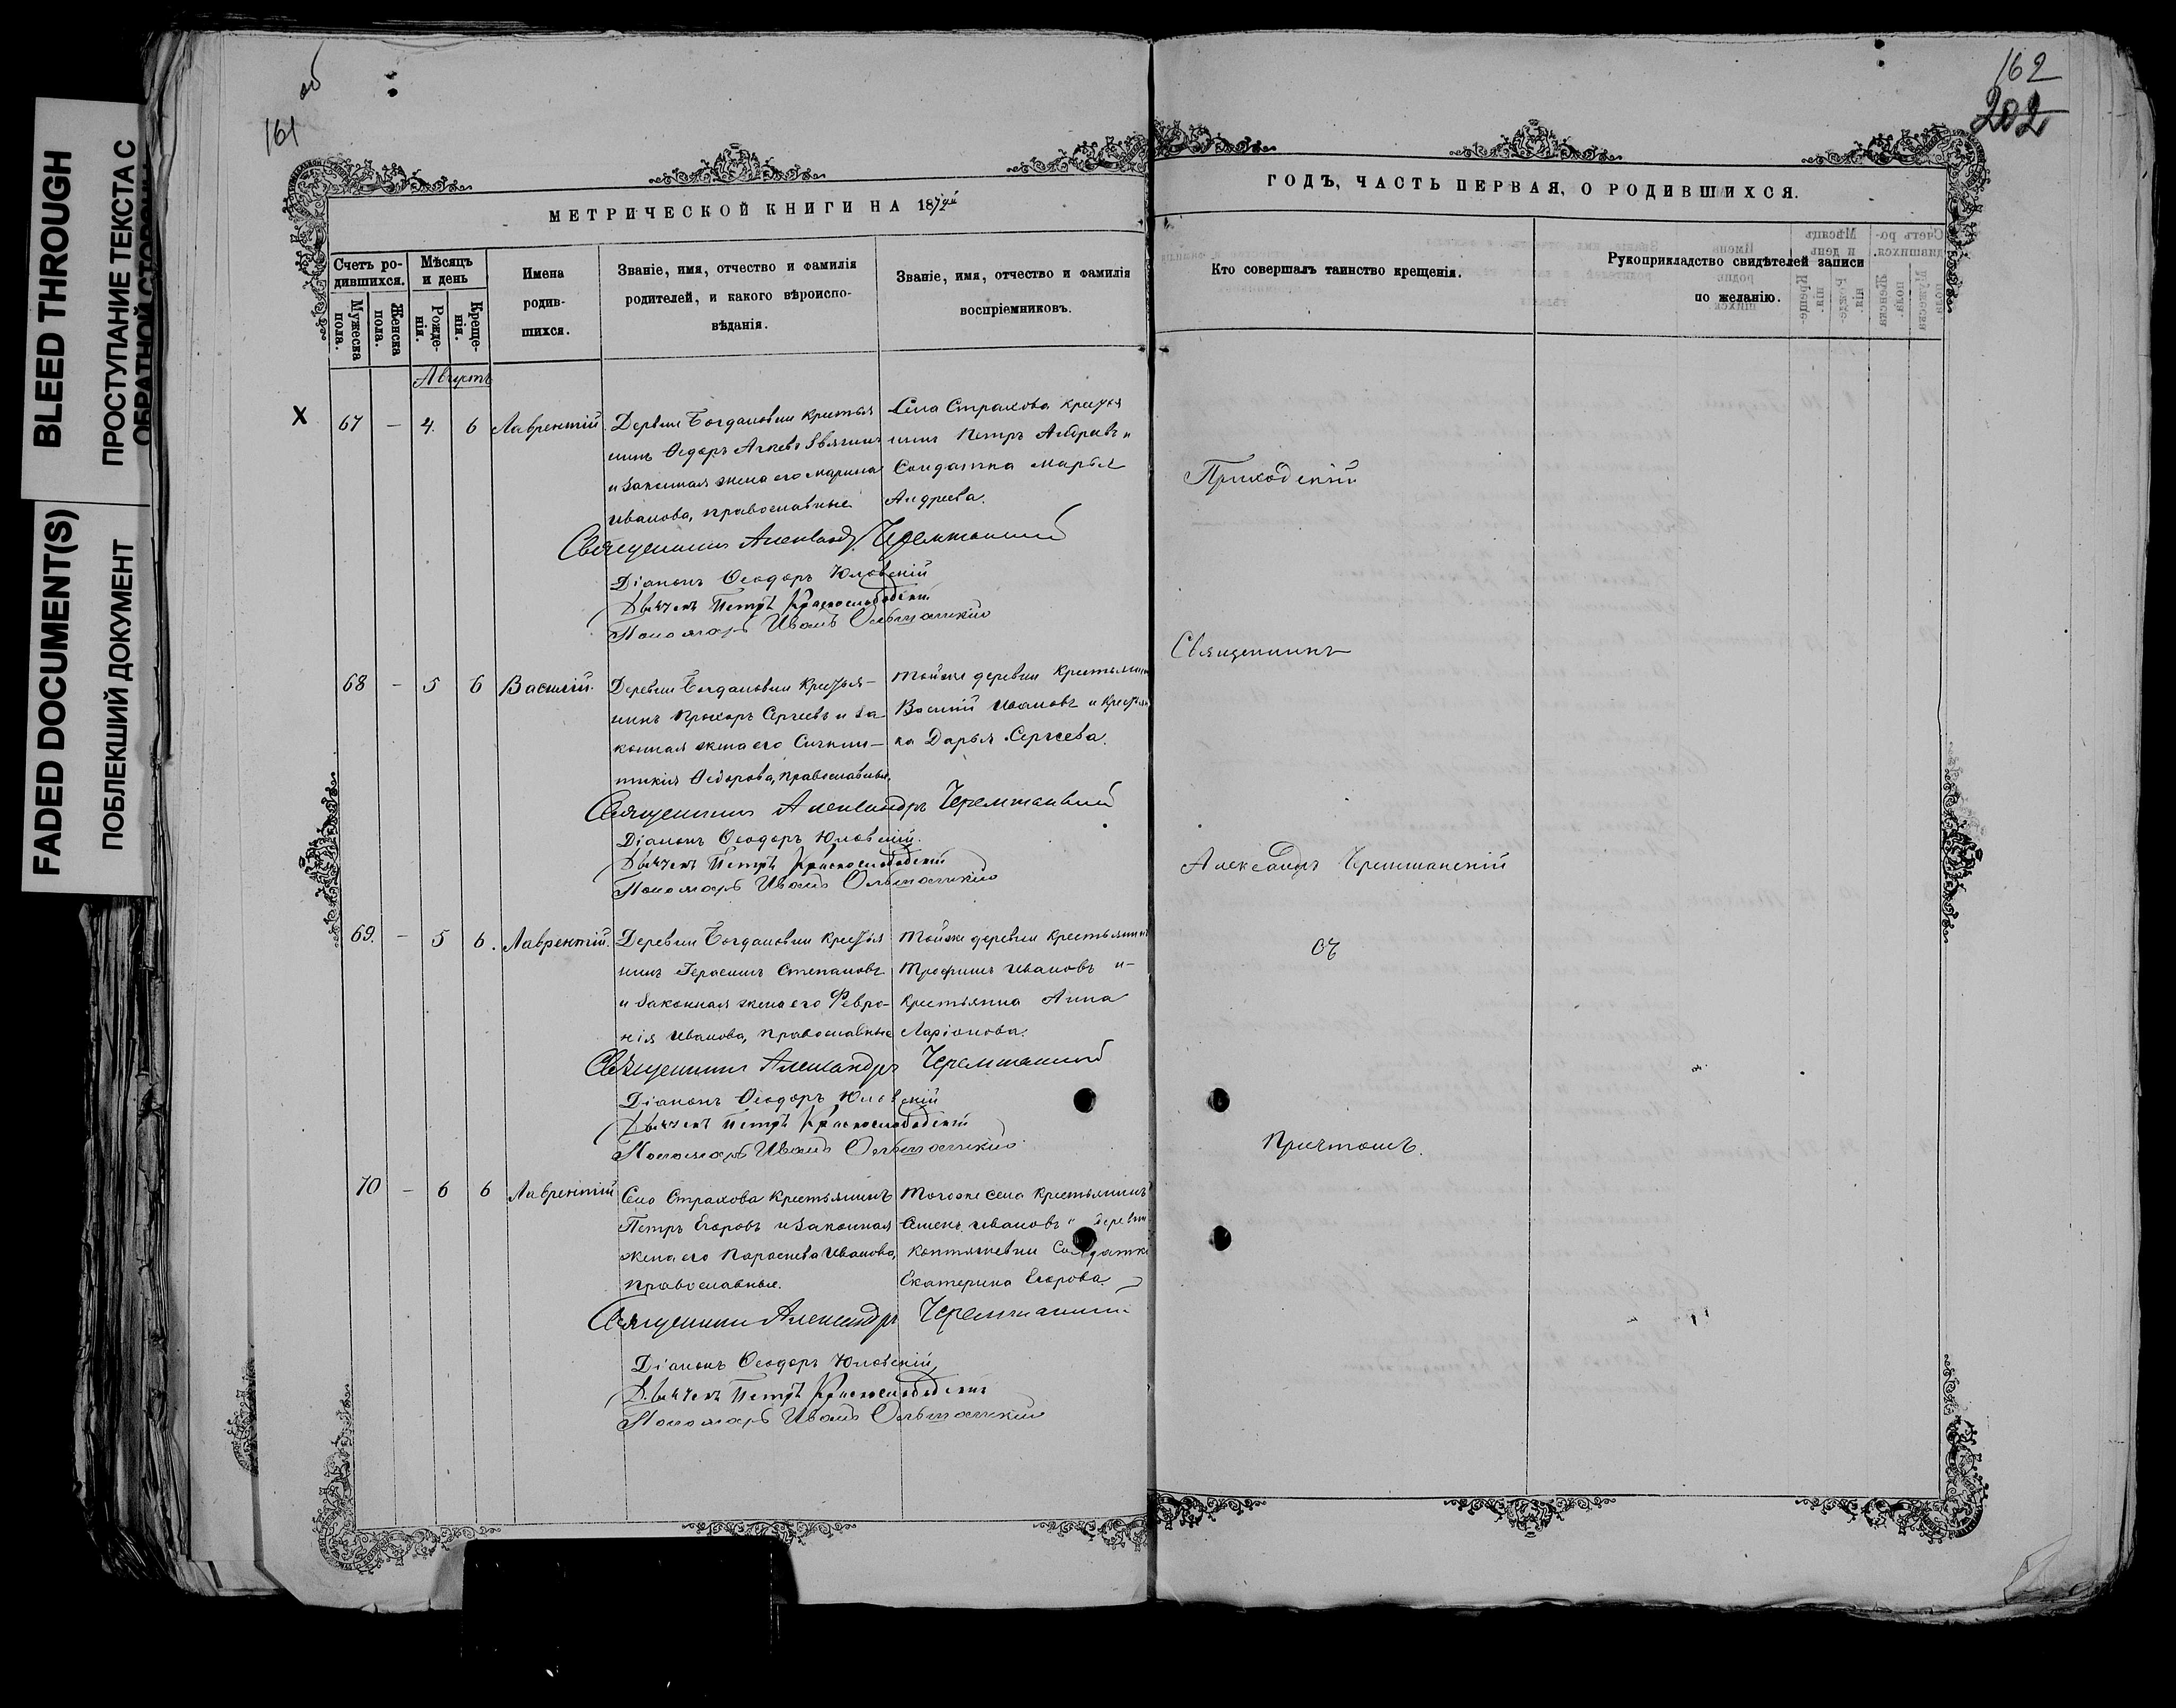 BLEED THROUGH
ПРОСТУПАНИЕ ТЕКСТА С
ОБРАТНОЙ СТОРОНЫ
FADED DOCUMENT(S)
ПОБЛЕКШИЙ ДОКУМЕНТ
161
об
МЕТРИЧЕСКОЙ КНИГИ НА 1872й
Счетъ ро-
дившихся.
Мужеска
пола.
Женска
пола.
Мѣсяцъ
и день
Рожде-
нія.
Креще-
нія.
Имена
родив-
шихся.
Званіе, имя, отчество и фамилія
родителей, и какого вѣроиспо-
вѣданія.
Званіе, имя, отчество и фамилія
воспріемниковъ.
Августъ
X 67 – 4. 6 Лаврентій.
Деревни Богдановки крестья
нинъ Ѳедоръ
и законная жена его Марина
Иванова, православные
Села Страхова кресть
нинъ Петръ Андреевъ и
Солдатка Марья
Андреева.
Священникъ Александръ Черемшанскій
Діаконъ Ѳеодоръ Юловскій
Дьячекъ Петръ Краснослободскій
Пономарь Иванъ Ольшанскій
68 – 5 6 Василій.
Деревни Богдановки крестья-
нинъ Прохоръ Сергеевъ и за-
конная жена его Сигкли-
тикія Ѳедорова, православные.
Тойже деревни крестьянинъ
Василій Ивановъ и крестьян
ка Дарья Сергеева.
Священникъ Александръ Черемшанскій
Діаконъ Ѳеодоръ Юловскій.
Дьячекъ Петръ Краснослободскій
Пономарь Иванъ Ольшанскій
69. – 5 6. Лаврентій.
Деревни Богдановки крестья
нинъ Герасимъ Степановъ
и законная жена его Февро-
нія Иванова, православные
Тойже деревни крестьянинъ
Трофимъ Ивановъ и-
крестьянка Анна
Ларіонова.
Священникъ Александръ Черемшанскій
Діаконъ Ѳеодоръ Юловскій
Дьячекъ Петръ Краснослободскій
Пономарь Иванъ Ольшанскій
70 – 6 6 Лаврентій
Село Страхова крестьянинъ
Петръ Егоровъ и законная
жена его Параскева Иванова,
православные.
Тогоже села крестьянинъ
Ивановъ и деревни
Солдатка
Екатерина Егорова.
Священникъ Александръ Черемшанскій
Діаконъ Ѳеодоръ Юловскій
Дьячекъ Петръ Краснослободскій
Пономарь Иванъ Ольшанскій
162
202
ГОДЪ, ЧАСТЬ ПЕРВАЯ, О РОДИВШИХСЯ.
Кто совершалъ таинство крещенія.
Рукоприкладство свидѣтелей записи
по желанію.
Приходскій
Священникъ
Александръ Черемшанскій
съ
Причтомъ.